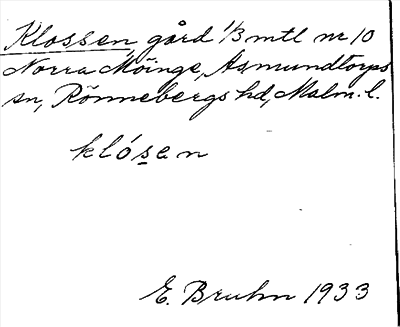 Klossen, gård 1/3 mtl nr 10
Norra Möinge, Asmundtorps
sn, Rönnebergs hd, Malm. l.
klósen
E. Bruhn 1933